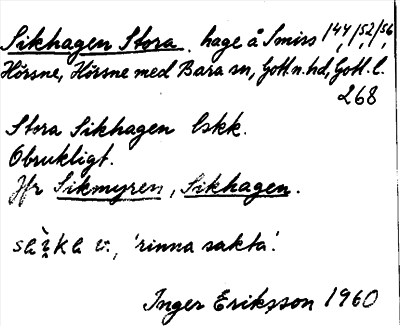 Sikhagen Stora, hage å Smiss 1⁴⁴, 1⁵², 1⁵⁶,
Hörsne, Hörsne med Bara sn, Gotl. n. hd, Gotl. l.
268
Stora Sikhagen Eskk.
Obrukligt.
Jfr Sikmyren, Sikhagen.
v., 'rinna sakta'.
Inger Eriksson 1960